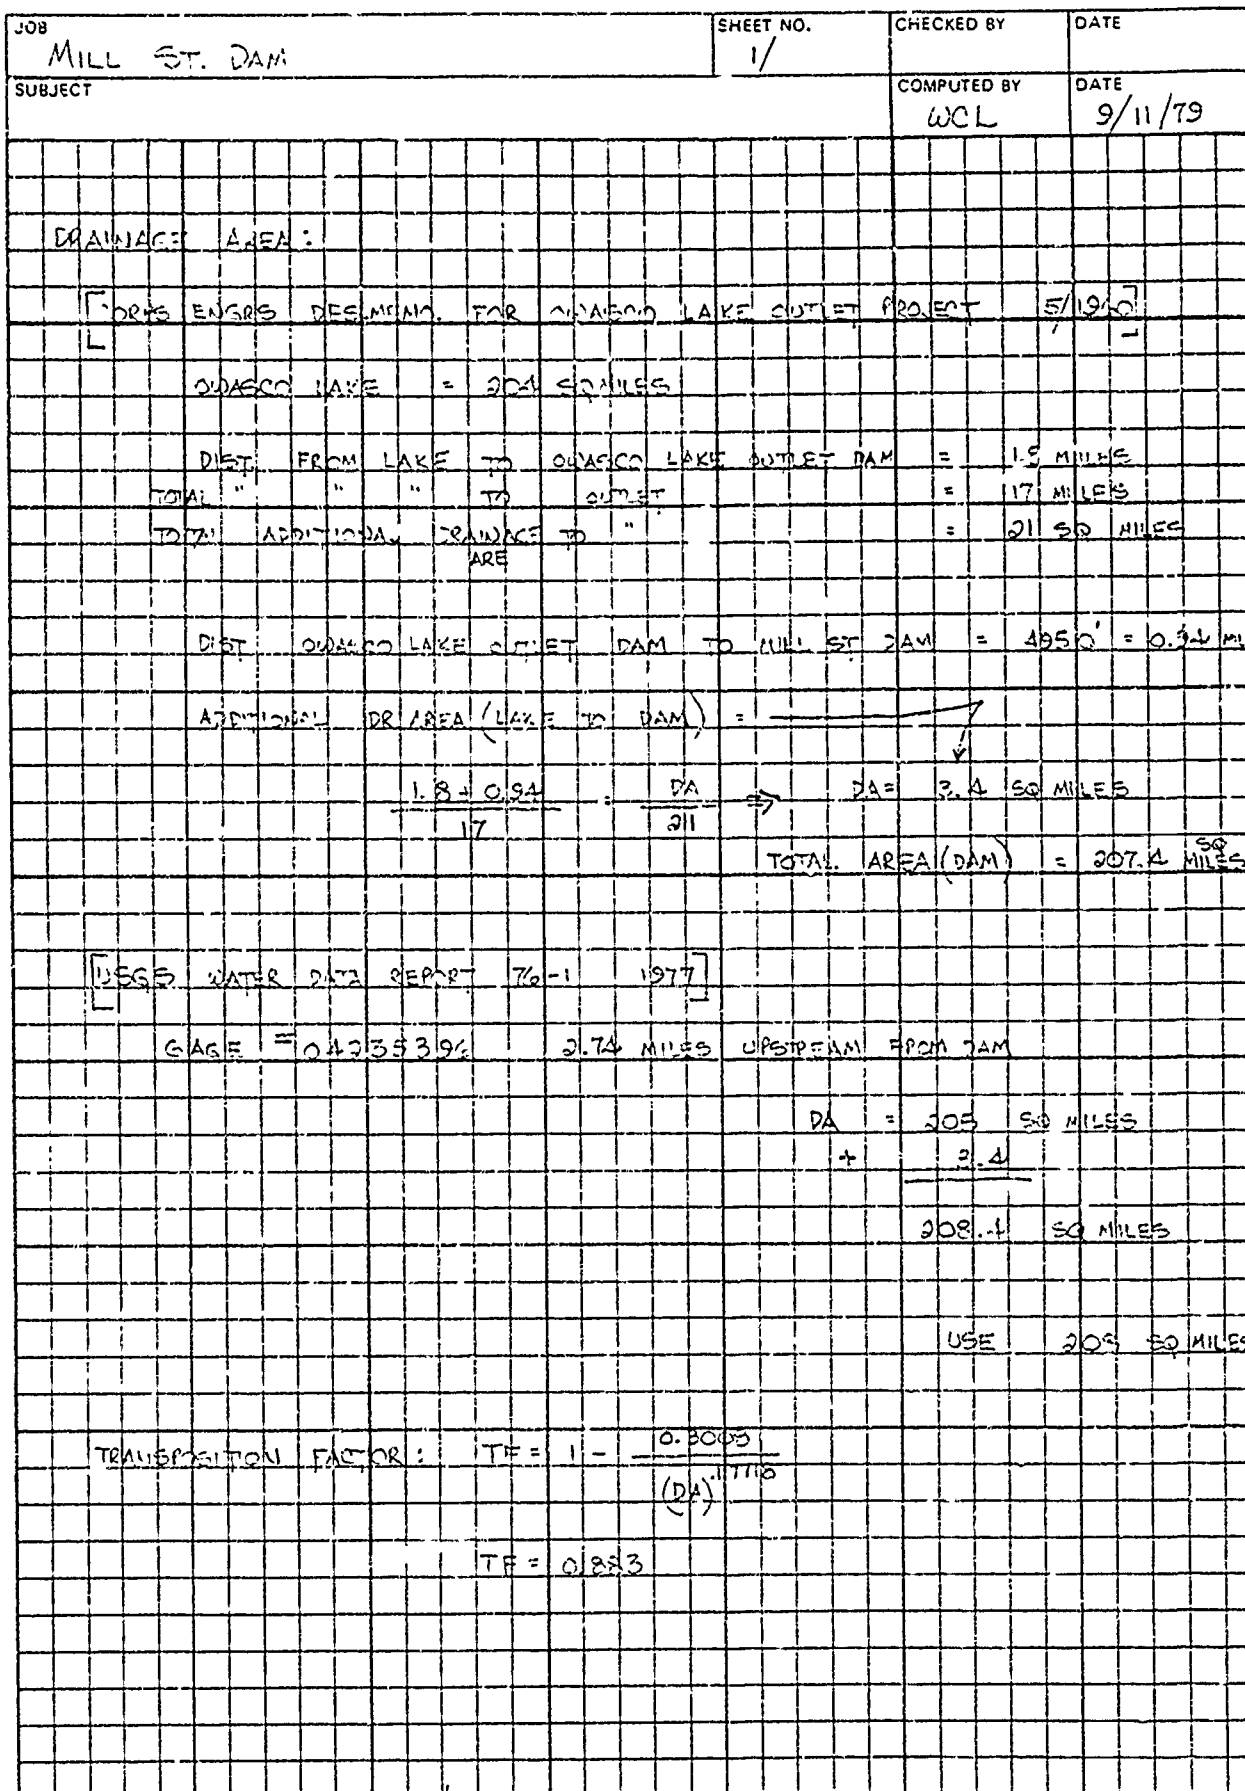 JOB
MILL ST. DAM
SHEET NO.
1/
CHECKED BY
DATE
SUBJECT
COMPUTED BY
WCL
DATE
9/11/79
DRAINAGE AREA:
[CORPS ENGRS DES. MEMO. FOR OWASCO LAKE OUTLET PROJECT 5/19 ]
OWASCO LAKE = 204 SQ MILES
DIST. FROM LAKE TO OWASCO LAKE OUTLET DAM = 1.8 MILES
TOTAL " " " TO OUTLET = 17 MILES
TOTAL ADDITIONAL DRAINAGE TO " = 21 SQ MILES
ARE
DIST OWASCO LAKE OUTLET DAM TO MILL ST DAM = 4950' = 0.94 MI
ADDITIONAL DR AREA (LAKE TO DAM) =
1.8 + 0.94 / 17 = DA / 21 ⇒ DA = 3.4 SQ MILES
TOTAL AREA (DAM) = 207.4 SQ MILES
[USGS WATER DATA REPORT 76-1 1977]
GAGE = 04235396 2.74 MILES UPSTREAM FROM DAM
DA = 205 SQ MILES
+ 3.4
208.4 SQ MILES
USE 208 SQ MILES
TRANSPOSITION FACTOR: TF = 1 - 0.3008 / (DA)^.17718
TF = 0.883